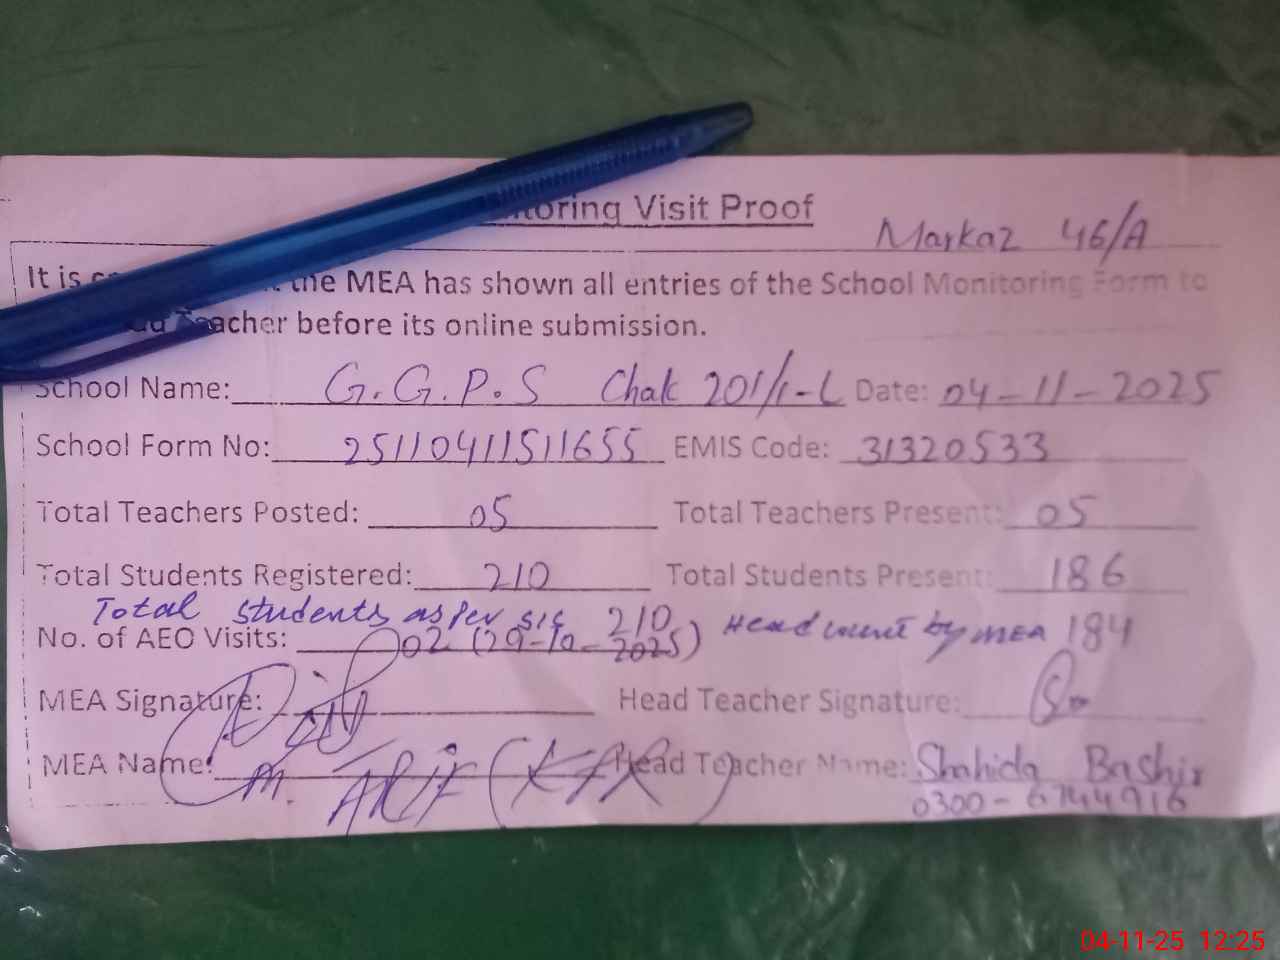 toring Visit Proof
Markaz 46/A
It is the MEA has shown all entries of the School Monitoring Form to
Teacher before its online submission.
School Name: G.G.P.S Chak 201/1-L Date: 04-11-2025
School Form No: 25110411511655 EMIS Code: 31320533
Total Teachers Posted: 05 Total Teachers Present: 05
Total Students Registered: 210 Total Students Present: 186
Total students as per sis 210 Head count by MEA 184
No. of AEO Visits: 02 (29-10-2025)
MEA Signature: Head Teacher Signature:
MEA Name: M. ARIF Head Teacher Name: Shahida Bashir
0300-6744916
04-11-25 12:25